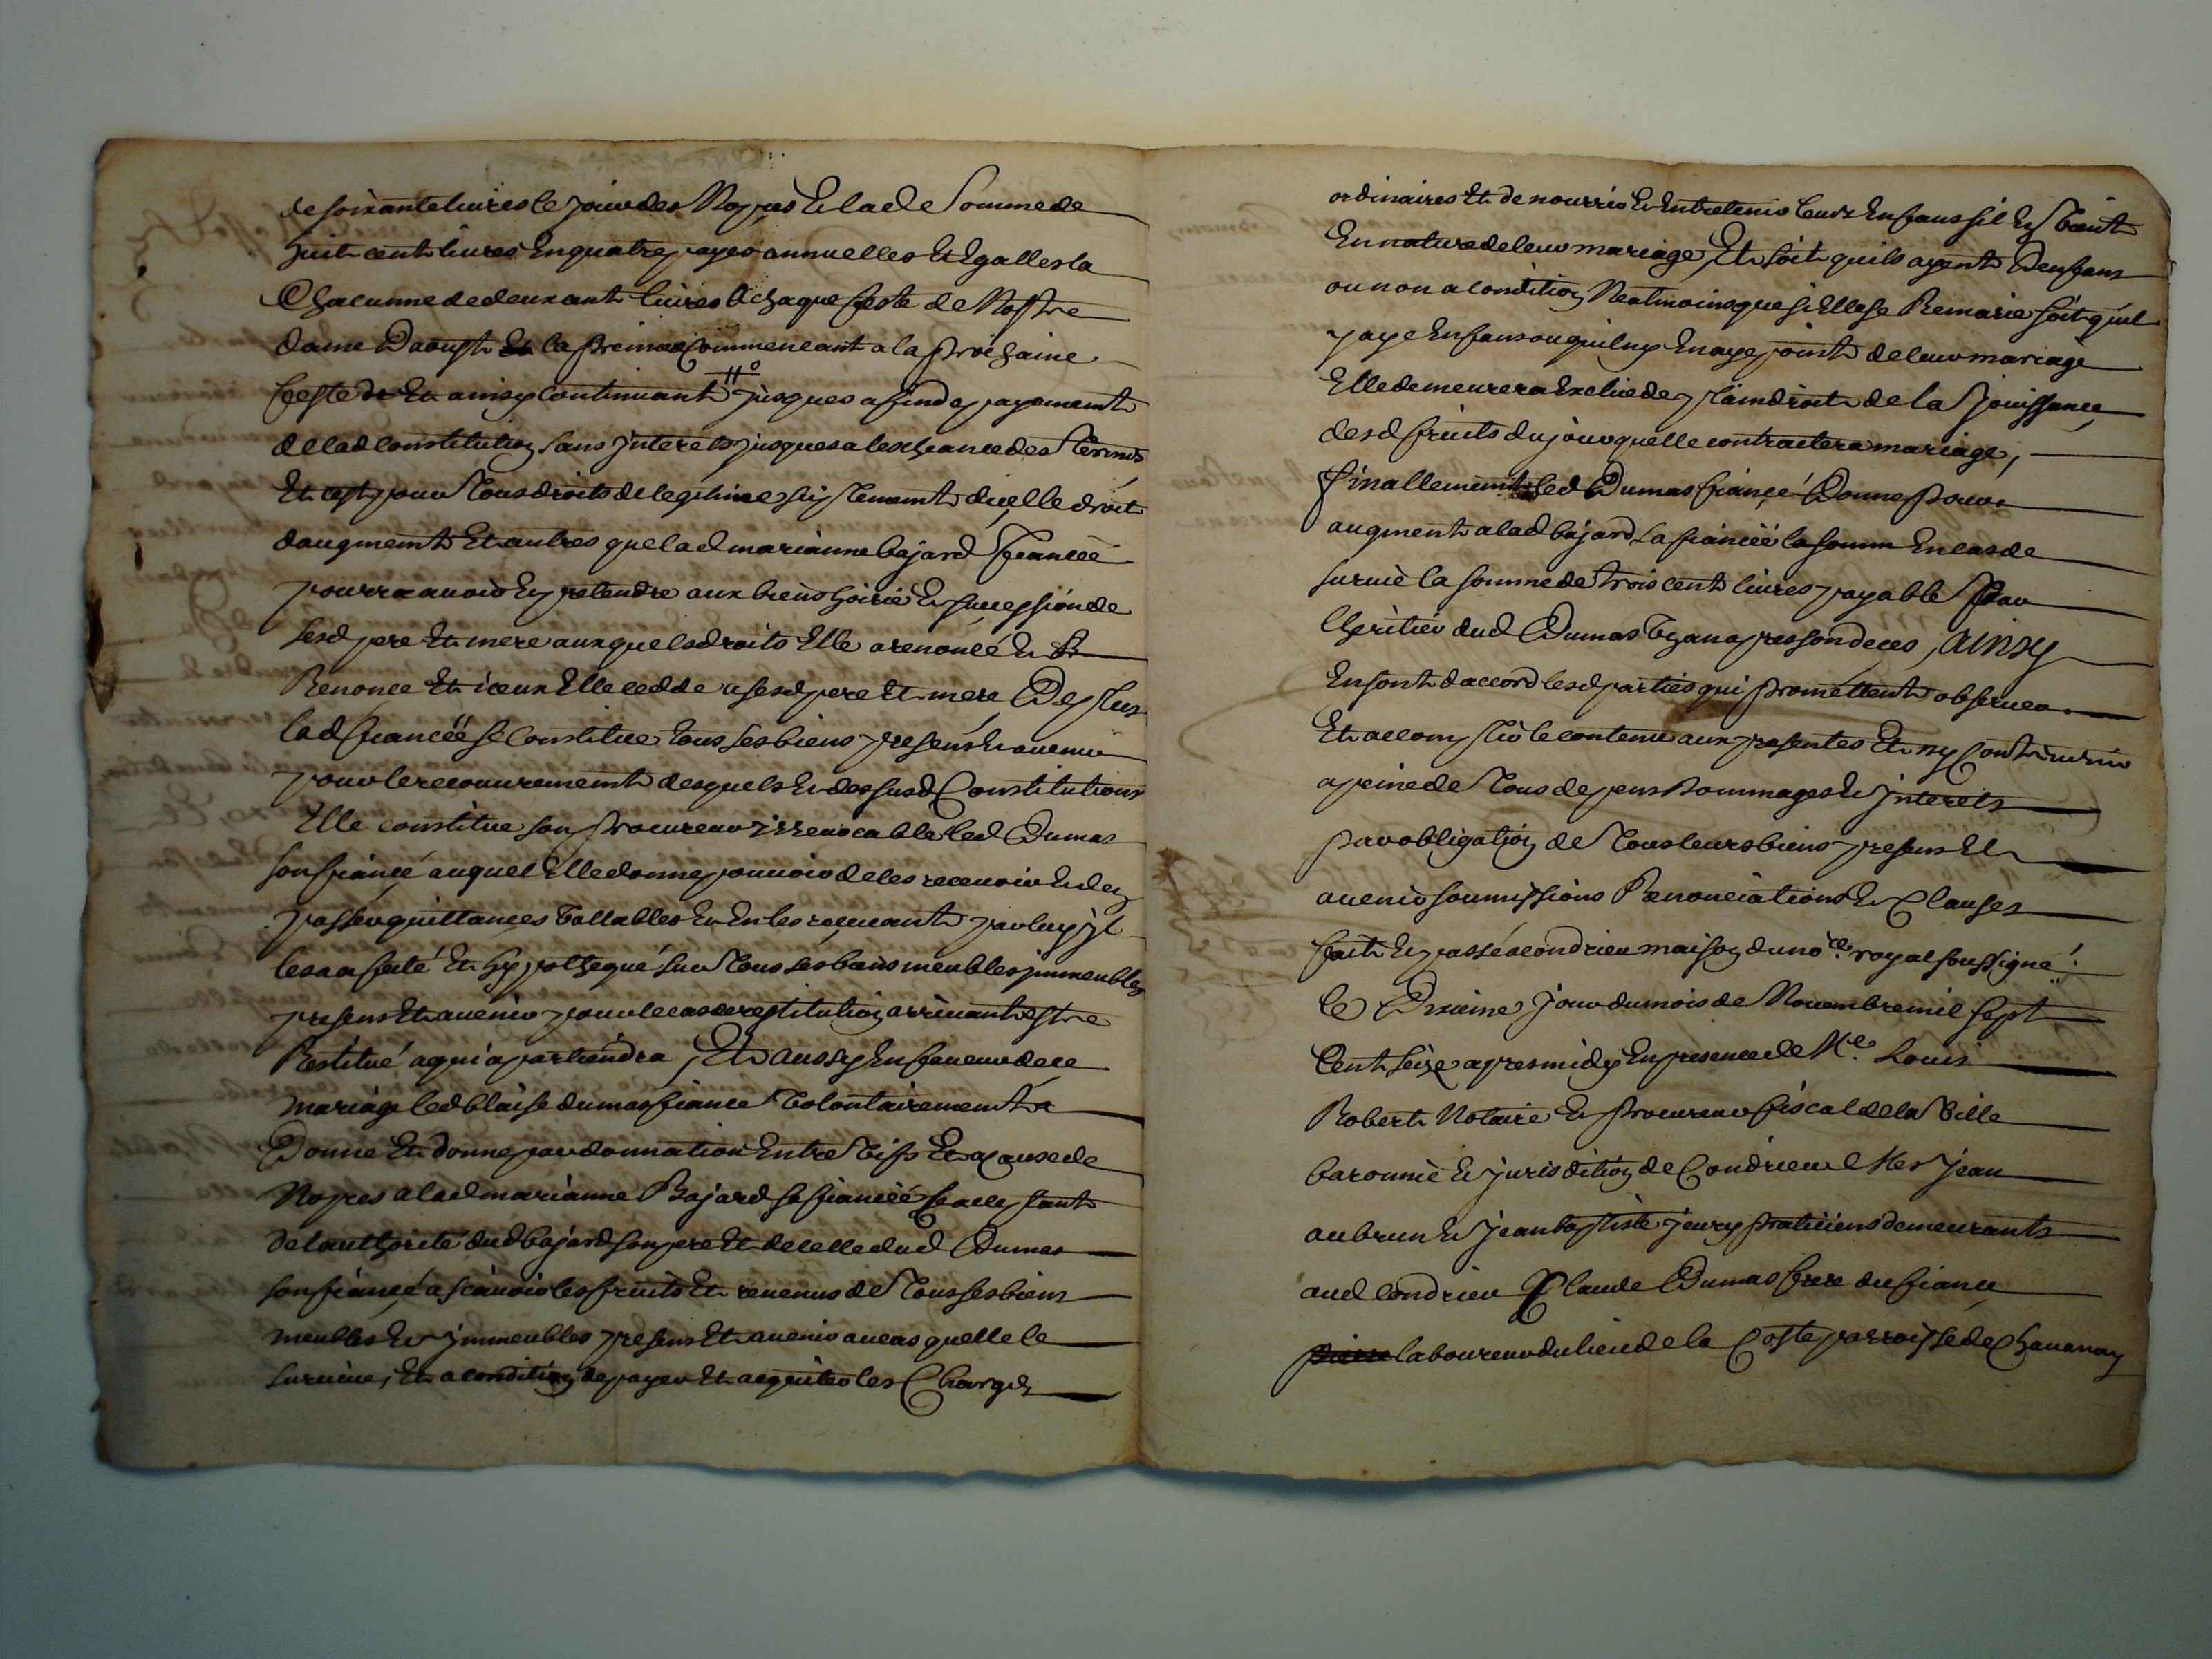 de soixante livres le jour des Nopces Et lad.e Somme de
huit cents livres En quatre payes annuelles Et Egalles la
Chacunne de deux cent livres A chaque feste de Nostre
dame Daoust la premiere Commencant a la prochaine
feste Et ainsy Continuant jusques a fin de payement
de lad Constitution Sans Interets jusques a lescheance des Termes
Et cest pour Tous droits de legitime suplement dicelle droit
daugment Et autres que lad marianne bajard fiancée
pourra avoir Et pretendre aux biens hoirie Et succession de
sesd pere Et mere auxquels droits Elle a renoncé Et
Renonce Et iceux Elle cedde a sesd pere Et mere, De plus
lad fiancée se Constitue tous ses biens presens Et avenir
pour le recouvrement desquels Et des susd Constitutions
Elle constitue son procureur irrevocable led Dumas
son fiancé auquel Elle donne pouvoir de les recevoir Et den
passer quittances Vallables Et En les recevant par luy jl
les a afecté Et hypothequé sur Tous ses biens meubles jmmeubles
presens Et avenir pour le cas de restitution arrivant Estre
Restitué a qui apartiendra, Et aussy En faveur de ce
mariage led blaise dumas fiance Volontairement a
Donné Et donne par donnation Entre Vifs Et a cause de
Nopces a lad marianne Bajard sa fiancée Acceptant
de lauthorité dud bajard son pere Et de celle dud Dumas
son fiancé, a scavoir les fruits Et revenus de Tous ses biens
meubles Et jmmeubles presens Et avenir au cas quelle le
survive, Et a condition de payer Et acquiter les Charges
ordinaires Et de nourrir Et Entretenir leurs Enfans sil En Vient
En nature de leur mariage, Et soit quils ayent Denfans
ou non a condition Neatmoins que si Elle se Remarie soit quil
y aye Enfans ou quil ny En aye point de leur mariage
Elle demeurera Exclue de plain droit de la Jouissance
desd fruits du jour quelle contractera mariage,
finallement led Dumas fiancé Donne Pour
augment a lad bajard sa fiancée la somm En cas de
survie la somme de trois cent livres payable Par
lheritier dud Dumas Vn an apres son deces, Ainsy
En sont daccord lesd parties qui promettent observer
Et accomplir le contenu aux presentes Et ny Contrevenir
a peine de Tous depens Dommages Et jnterets
par obligation de Tous leurs biens presens Et
avenir soumissions Renonciations Et Clauses
fait Et passé a condrieu maison du no.re royal soussigné
le Dixieme jour du mois de Novembre mil sept
Cent seize apres midy En presence de M.e Louis
Robert Notaire Et procureur fiscal de la Ville
baronnie Et jurisdition de Condrieu sies Jean
aubrun Et jean baptiste jeury praticiens demeurants
aud condrieu Claude Dumas frere du fiancé
laboureur du lieu de la Coste parroisse de Chavanay